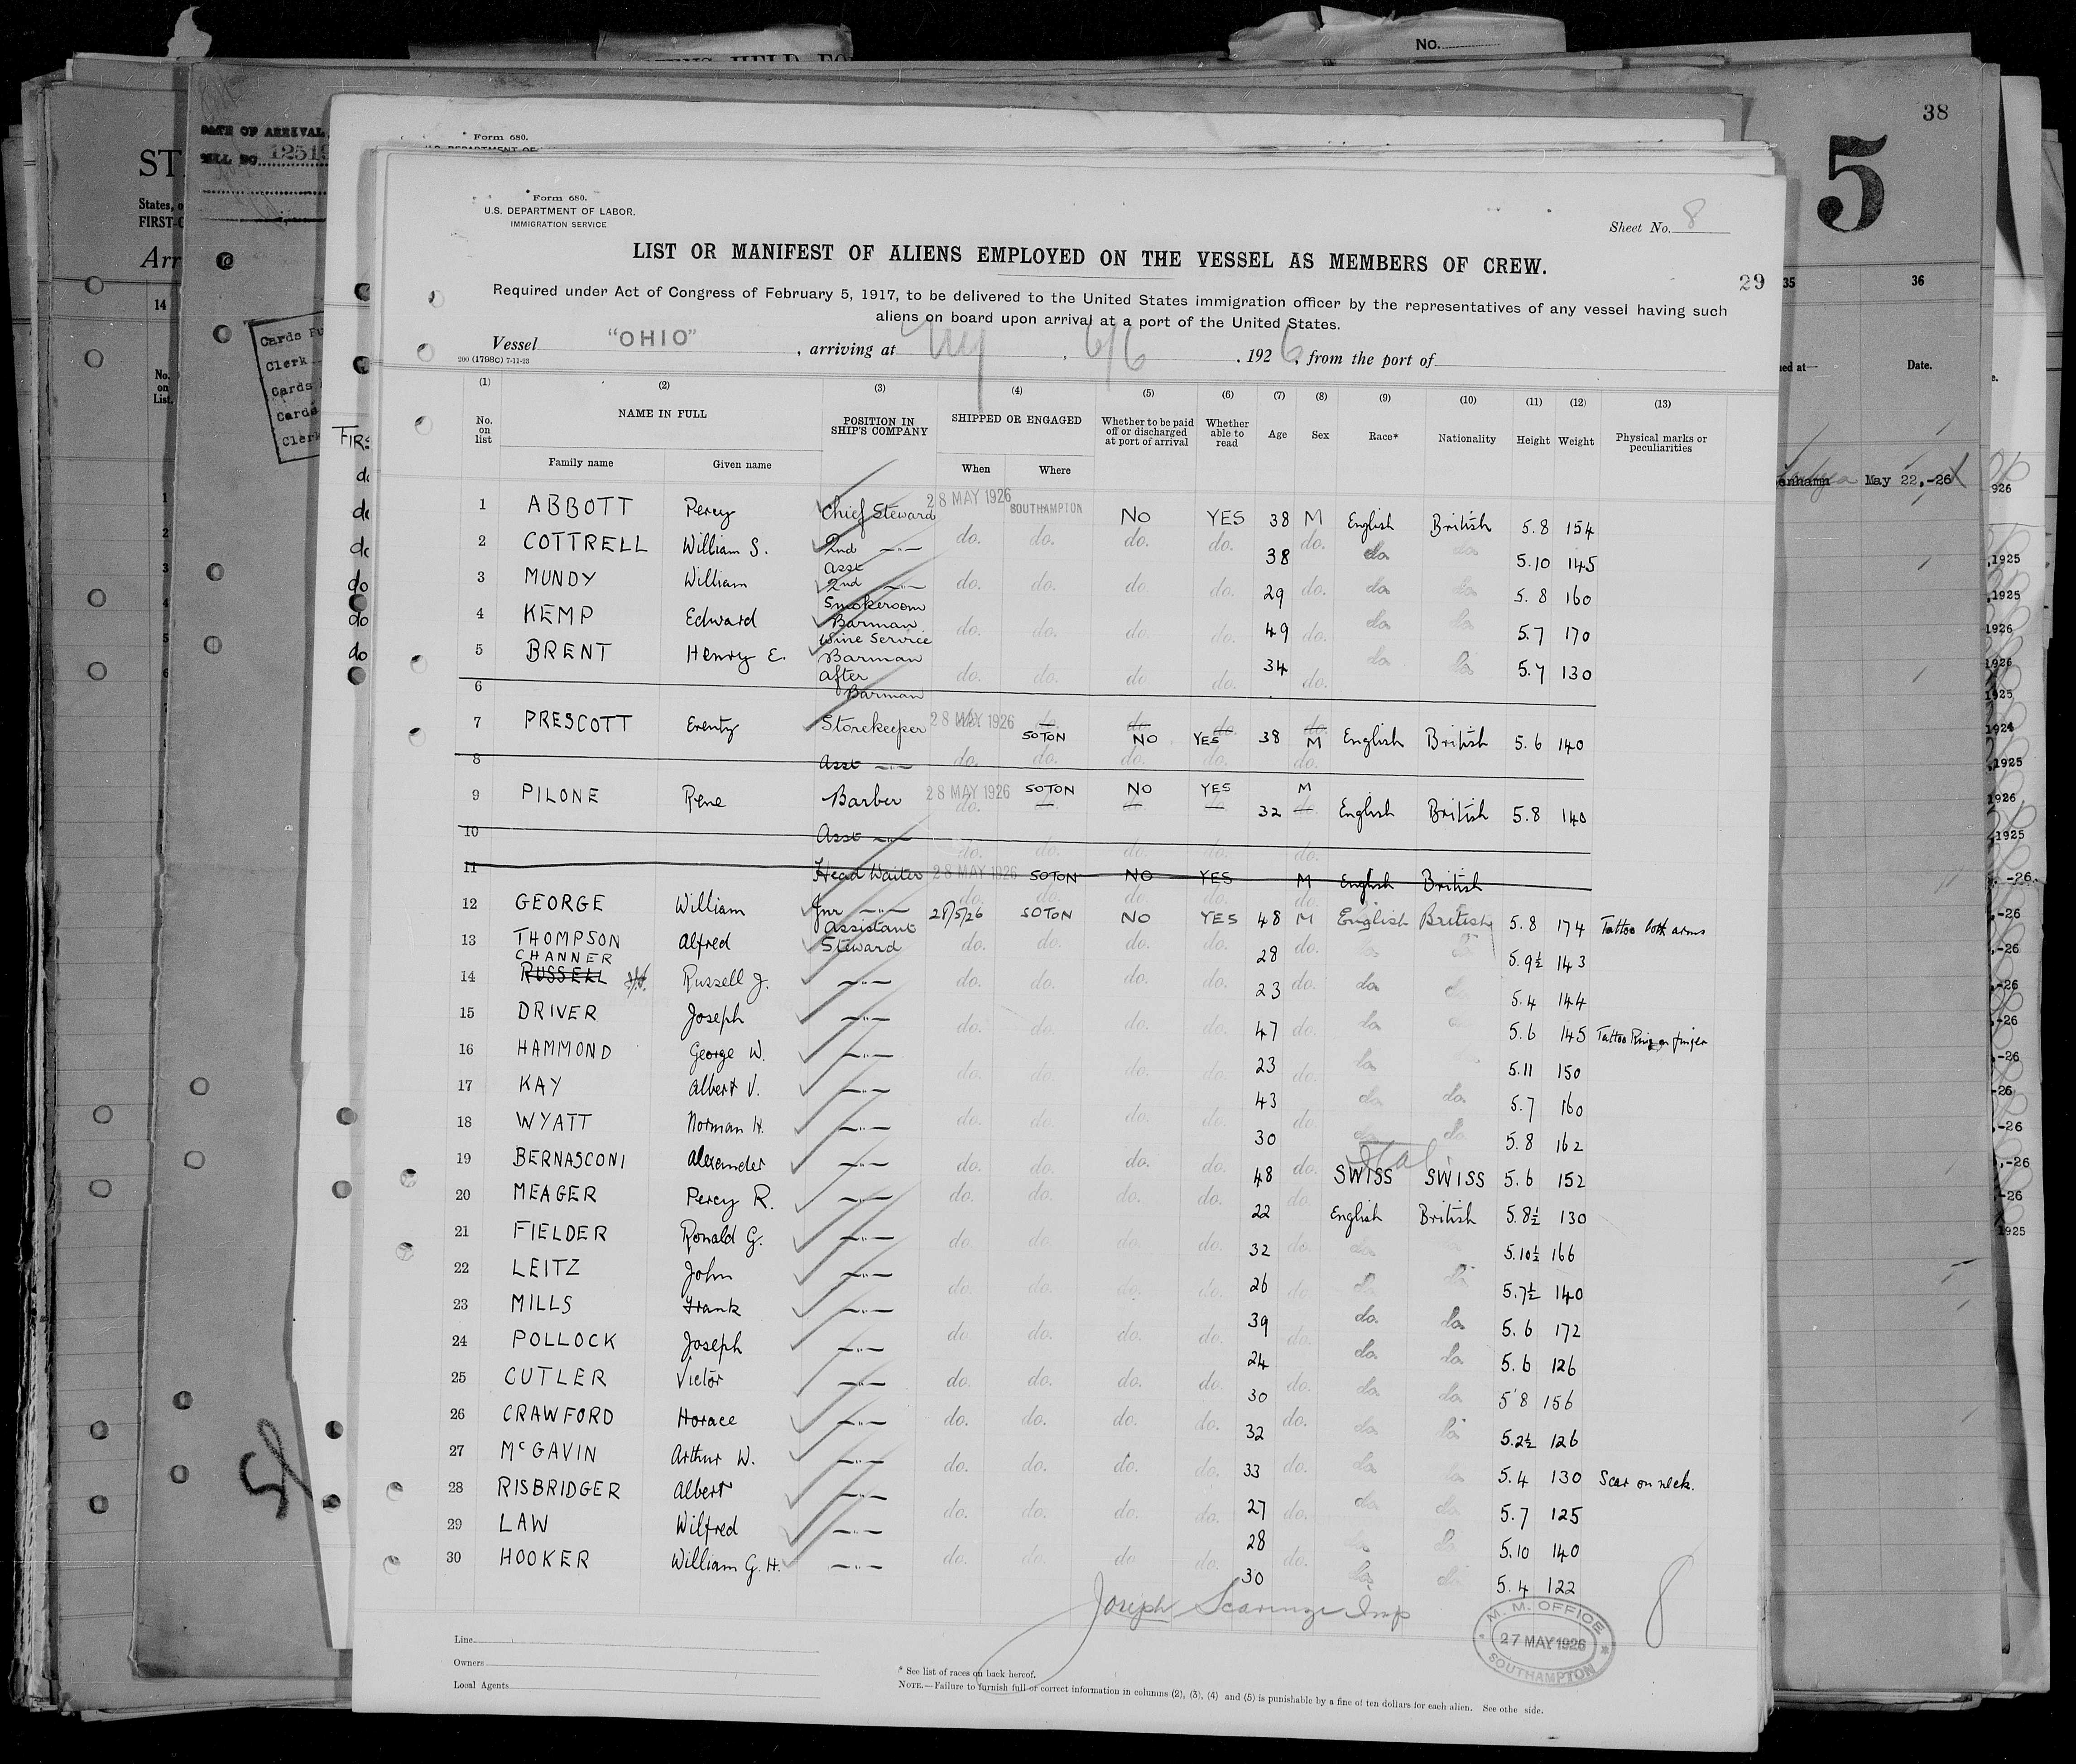 No.
38
5
DATE OF ARRIVAL
States, o
FIRST-C
Arr
14
No. on List.
Cards
Clerk
Cards
Cards
Clerk
35
36
Date.
May 22, -26
Form 680.
Form 680.
U.S. DEPARTMENT OF LABOR.
IMMIGRATION SERVICE
Sheet No. 8
LIST OR MANIFEST OF ALIENS EMPLOYED ON THE VESSEL AS MEMBERS OF CREW.
29
Required under Act of Congress of February 5, 1917, to be delivered to the United States immigration officer by the representatives of any vessel having such
aliens on board upon arrival at a port of the United States.
Vessel "OHIO", arriving at NY, 6/6, 1926, from the port of
200 (1798C) 7-11-23
(1) (2) (3) (4) (5) (6) (7) (8) (9) (10) (11) (12) (13)
No. on list NAME IN FULL POSITION IN SHIP'S COMPANY SHIPPED OR ENGAGED Whether to be paid off or discharged at port of arrival Whether able to read Age Sex Race* Nationality Height Weight Physical marks or peculiarities
Family name Given name When Where
1 ABBOTT Percy Chief Steward 28 MAY 1926 SOUTHAMPTON NO YES 38 M English British 5.8 154
2 COTTRELL William S. 2nd —"— do. do. do. do. 38 do. do do 5.10 145
3 MUNDY William Asst 2nd —"— do. do. do. do. 29 do. do do 5.8 160
4 KEMP Edward Smokeroom Barman do. do. do. do. 49 do. do do 5.7 170
5 BRENT Henry E. Wine Service Barman do. do. do. do. 34 do. do do 5.7 130
6 After Barman
7 PRESCOTT Storekeeper 28 MAY 1926 do. SOTON do. NO do. YES 38 do. M English British 5.6 140
8 Asst —"— do. do. do. do. do.
9 PILONE Rene Barber 28 MAY 1926 do. SOTON NO YES 32 M English British 5.8 140
10 Asst —"— do. do. do. do. do.
11 Head Waiter 28 MAY 1926 SOTON NO YES M English British
12 GEORGE William Jnr —"— 28/5/26 SOTON NO YES 48 M English British 5.8 174 Tattoo both arms
13 THOMPSON Alfred Assistant Steward do. do. do. do. 28 do. do do 5.9½ 143
14 CHANNER RUSSELL Russell J. —"— do. do. do. do. 23 do. do do 5.4 144
15 DRIVER Joseph —"— do. do. do. do. 47 do. do do 5.6 145 Tattoo Ring on finger
16 HAMMOND George W. —"— do. do. do. do. 23 do. do 5.11 150
17 KAY Albert V. —"— do. do. do. do. 43 do. do do 5.7 160
18 WYATT Norman H. —"— do. do. do. do. 30 do. do do 5.8 162
19 BERNASCONI Alexander —"— do. do. do. do. 48 do. Ital SWISS SWISS 5.6 152
20 MEAGER Percy R. —"— do. do. do. do. 22 do. English British 5.8½ 130
21 FIELDER Ronald G. —"— do. do. do. do. 32 do. do 5.10½ 166
22 LEITZ John —"— do. do. do. do. 26 do. do do 5.7½ 140
23 MILLS Frank —"— 39 do do 5.6 172
24 POLLOCK Joseph —"— do do. do. do. 24 do. do do 5.6 126
25 CUTLER Victor —"— do. do. do. do. 30 do. do do 5'8 156
26 CRAWFORD Horace —"— do. do. do. do. 32 do. do do 5.2½ 126
27 McGAVIN Arthur W. —"— do. do. do. do. 33 do. do do 5.4 130 Scar on neck.
28 RISBRIDGER Albert —"— do. do. do. do. 27 do. do do 5.7 125
29 LAW Wilfred —"— 28 do do 5.10 140
30 HOOKER William G. H. —"— do. do. do do. 30 do. do do 5.4 122
Joseph Imp
8
M. M. OFFICE
27 MAY 1926
SOUTHAMPTON
Line
Owners
Local Agents
* See list of races on back hereof.
NOTE.—Failure to furnish full or correct information in columns (2), (3), (4) and (5) is punishable by a fine of ten dollars for each alien. See othe side.